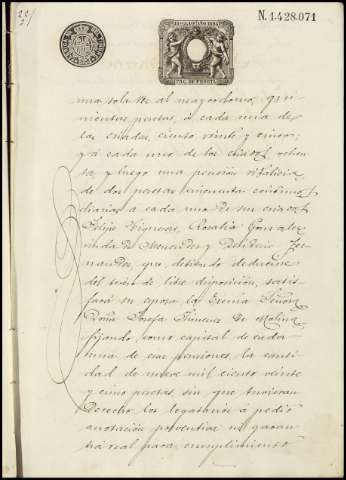 N. 1.428.071
una sola vez al mayordomo, qui-
nientas pesetas, á cada una de
las criadas, ciento veinte y cinco;
y á cada uno de los criados, ochen-
ta, y luego una pensión vitalicia
de dos pesetas cincuenta céntimos
diarios á cada uno de sus criados
Felipe Figueras, Rosalía Gonzalez
viuda de Menendez y Fer-
nandez, que, debiendo deducirse
del tercio de libre disposición, satis-
fará su esposa la Excma Señora
Doña Josefa Jimenez de Molina
fijando, como capital de cada
una de esas pensiones, la canti-
dad de nueve mil ciento veinte
y cinco pesetas, sin que tuvieran
derecho los legatarios á pedir
anotación preventiva ni garan-
tía real para cumplimiento